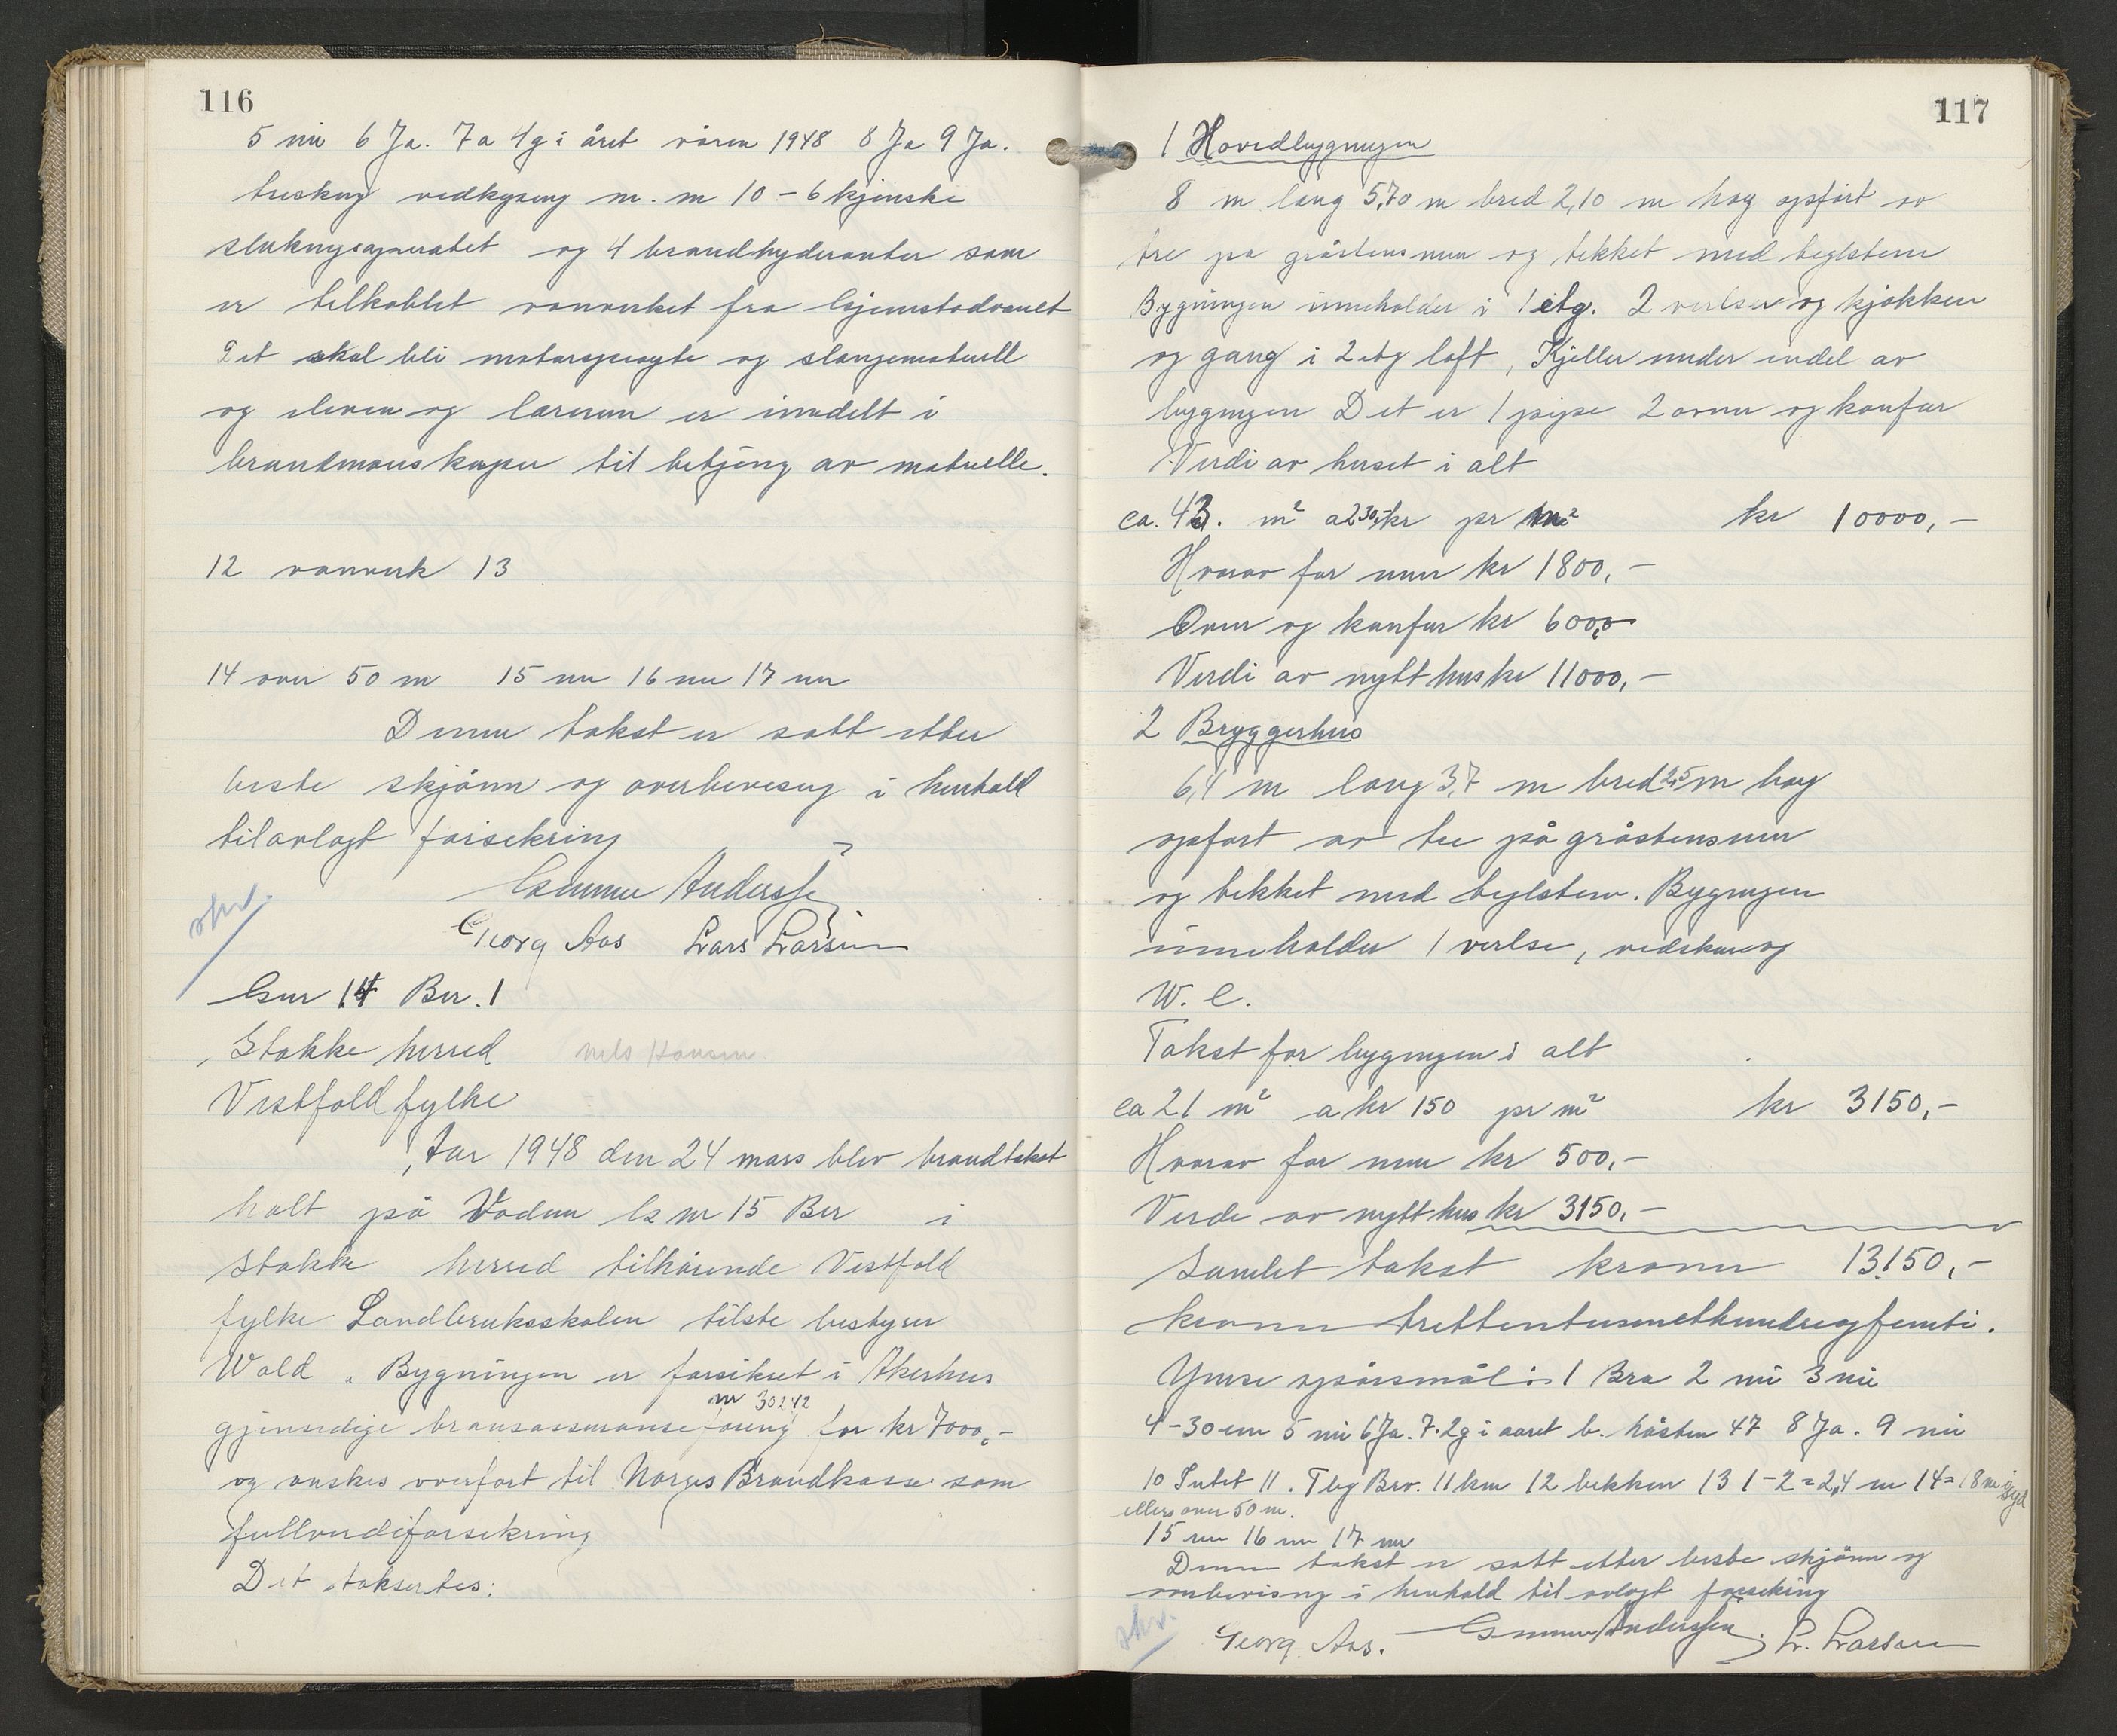 116
5 nei 6 Ja. 7 a 4 g i året våren 1948 8 Ja 9 Ja.
tresking vedkaping m. m 10 - 6 kjemiske
slukningsapparatet og 4 brandhyderanter som
er tilkoblet vanverket fra Gjennestadvanet
Det skal bli motorsprøyte og slangemateriell
og eleven og lærerne er inndelt i
brandmanskaper til betjeng av materielle.
12 vannverk 13
14 over 50 m 15 nei 16 nei 17 nei
Denne takst er satt etter
beste skjønn og overbevisng i henhold
til avlagt forsikring
Gunnar Anderssen
Georg Aas Lars Larsen
skr.
Gnr 14 Bnr. 1
Stokke herred Nels Hansen
Vestfold fylke
Aar 1948 den 24 mars blev brandtakst
halt på Vadum G nr 15 Bnr i
Stokke herred tilhørende Vestfold
fylke Landbruksskolen tilste bestyrer
Wold. Bygningen er forsikret i Akershus
nr 30242
gjensidige branassuranseforeng for kr 7000,-
og ønskes overført til Norges Brandkasse som
fullverdiforsikring
Det taksertes:
117
1 Hovedbygningen
8 m lang 5,70 m bred 2,10 m høy opført av
tre på gråstensmur og tekket med teglstein
Bygningen inneholder i 1 etg. 2 verlser og kjøkken
og gang i 2 etg loft, Kjeller under endel av
bygningen Det er 1 pipe 2 ovner og komfur
Verdi av huset i alt
ca. 43. m² a 230,- kr pr m² kr 10000,-
Hvorav for mur kr 1800,-
Ovner og komfur kr 600,0
Verdi av nytt hus kr 11000,-
2 Bryggerhus
6,4 m lang 3,7 m bred 2,5 m høy
opført av tre på gråstensmur
og tekket med teglstein. Bygningen
inneholder 1 verlse, vedskur og
W. C.
Takst for bygningen i alt
ca 21 m² a kr 150 pr m² kr 3150,-
Hvorav for mur kr 500,-
Verdi av nytt hus kr 3150,-
Samlet takst kroner 13150,-
kroner trettentusenetthundreogfemti.
Ymse spørsmål: 1 Bra 2 nei 3 nei
4 - 30 cm 5 nei 6 Ja. 7. 2 g i aaret b. høsten 47 8 Ja. 9 nei
10 Intet 11. Tbg Brv. 11 km 12 bekken 13 1 - 2 = 2,4 m 14 = 18 m i syd
ellers over 50 m.
15 nei 16 nei 17 nei
Denne takst er satt etter beste skjønn og
overbevisng i henhold til avlagt forsikring
skr.
Georg Aas. Gunnar Anderssen. L. Larsen